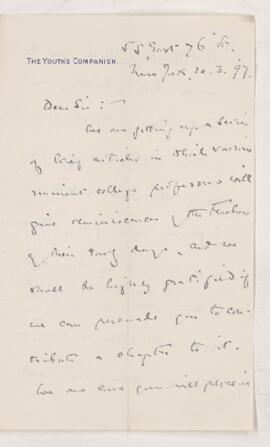 55 East 76 St.
THE YOUTH'S COMPANION.
New York. 20. 3. '97.
Dear Sir:
We are getting up a series
of brief articles in which various
eminent college professors will
give reminiscences of the teachers
of their early days, and we
shall be highly gratified if
we can persuade you to con-
tribute a chapter to it.
We are sure you will